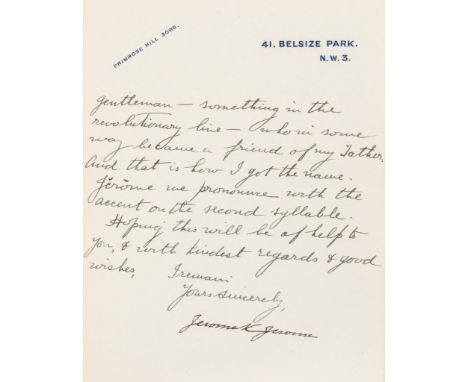 PRIMROSE HILL 3098.
41. BELSIZE PARK.
N.W. 3.
gentleman — something in the
revolutionary line — who in some
way became a friend of my Father.
And that is how I got the name.
Jĕrōme we pronounce with the
accent on the second syllable.
Hoping this will be of help to
you, & with kindest regards & good
wishes,
I remain
Yours sincerely,
Jerome K Jerome